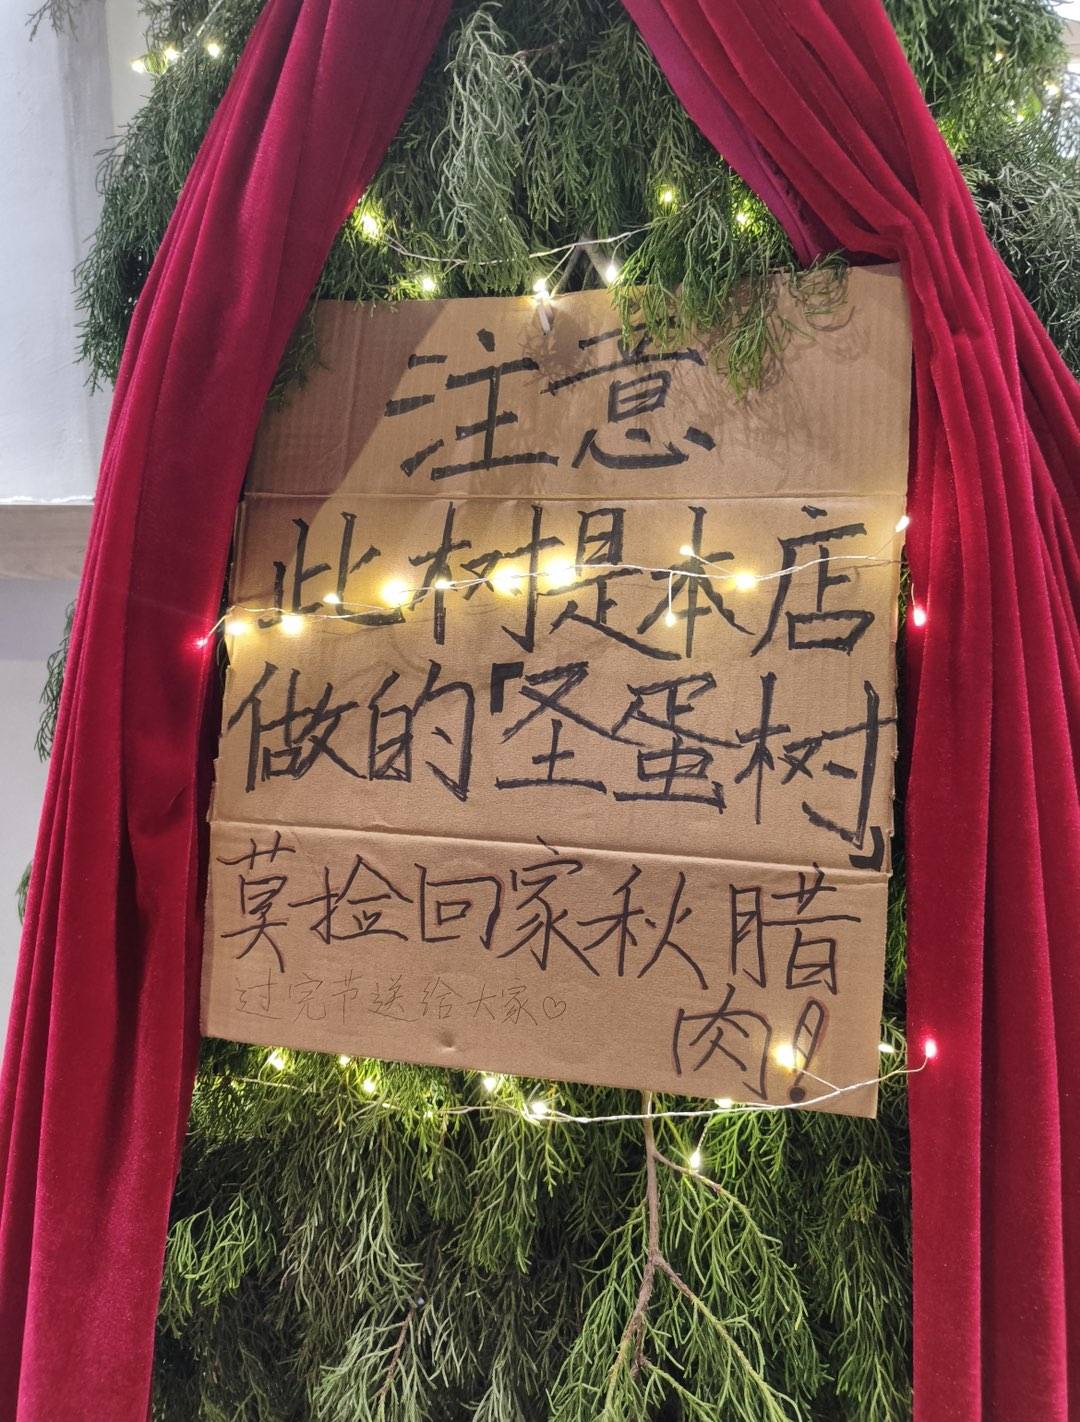 注意
此树是本店
做的「圣蛋树」
莫捡回家秋腊
肉!
过完节送给大家♡